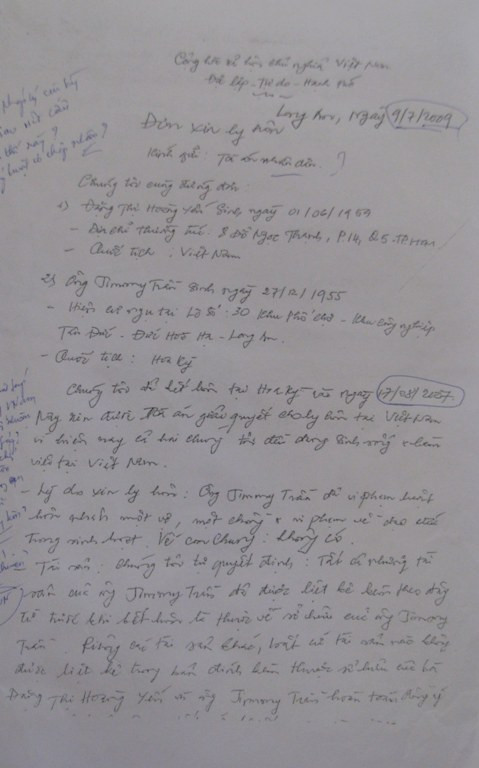 Cộng hòa xã hội chủ nghĩa Việt Nam
Độc lập - Tự do - Hạnh phúc
Long An, ngày 9/7/2009
Đơn xin ly hôn
Kính gửi: Tòa án nhân dân. ?
Chúng tôi cùng đứng đơn:
1) Đặng Thị Hoàng Yến sinh ngày 01/06/1959
- Địa chỉ thường trú: 8 Đỗ Ngọc Thạnh, P.14, Q5. TP.HCM
- Quốc tịch: Việt Nam
2) Ông Jimmy Trần sinh ngày 27/12/1955
- Hiện cư ngụ tại Lô số: 30 Khu Phố chợ - Khu công nghiệp
Tân Đức - Đức Hòa Hạ - Long An.
- Quốc tịch: Hoa Kỳ
Chúng tôi đã kết hôn tại Hoa Kỳ vào ngày 17/03/2007.
Nay xin được Tòa án giải quyết cho ly hôn tại Việt Nam
vì hiện nay cả hai chúng tôi đều đang sinh sống & làm
việc tại Việt Nam.
- Lý do xin ly hôn: Ông Jimmy Trần đã vi phạm luật
hôn nhân một vợ, một chồng & vi phạm về đạo đức
trong sinh hoạt. Về con chung: không có.
Tài sản: chúng tôi tự quyết định: Tất cả những tài
sản của ông Jimmy Trần đã được liệt kê kèm theo đây
từ trước khi kết hôn là thuộc về sở hữu của ông Jimmy
Trần. Riêng các tài sản khác, bất cứ tài sản nào không
được liệt kê trong bản đính kèm thuộc sở hữu của bà
Đặng Thị Hoàng Yến và ông Jimmy Trần hoàn toàn đồng ý